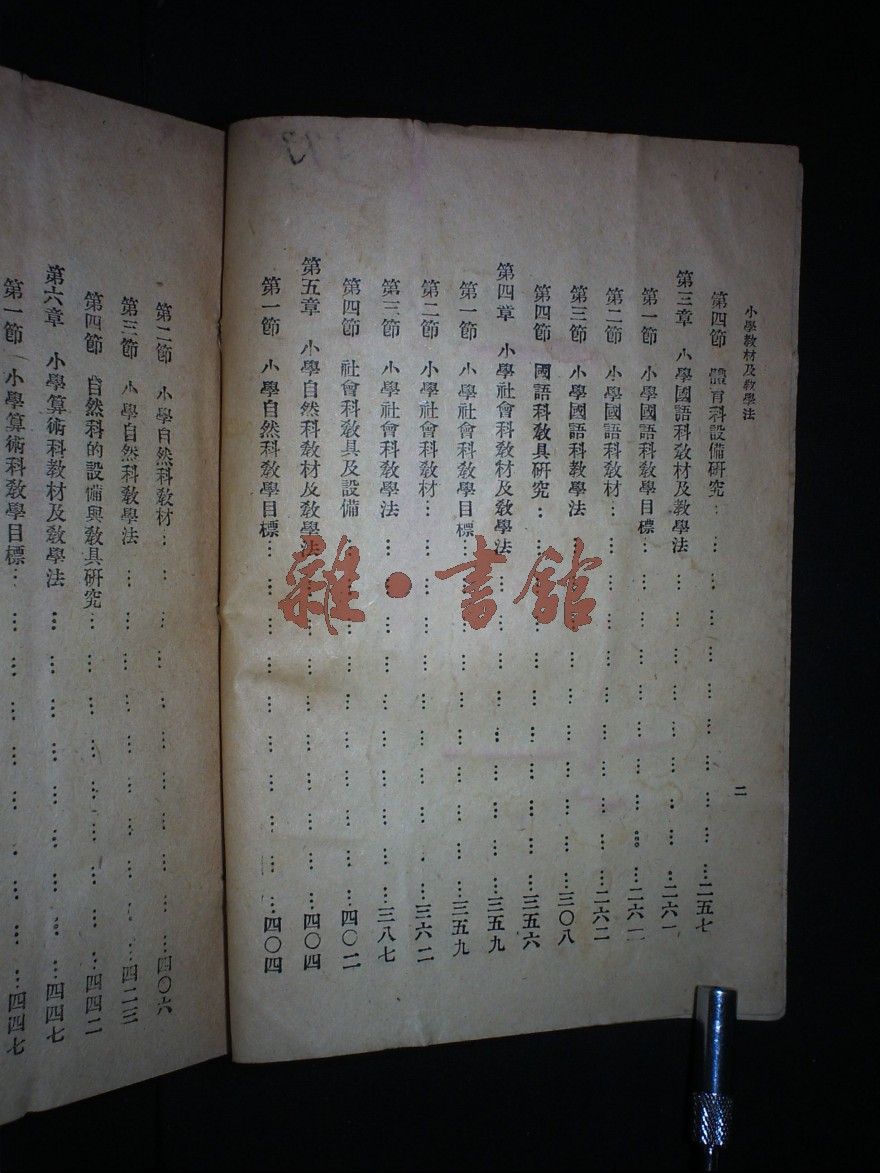 小學教材及教學法
二
第四節　體育科設備研究………………………二五七
第三章　小學國語科教材及教學法………………………二六一
第一節　小學國語科教學目標………………………二六一
第二節　小學國語科教材………………………二六二
第三節　小學國語科教學法………………………三〇八
第四節　國語科教具研究………………………三五六
第四章　小學社會科教材及教學法………………………三五九
第一節　小學社會科教學目標………………………三五九
第二節　小學社會科教材………………………三六二
第三節　小學社會科教學法………………………三八七
第四節　社會科教具及設備………………………四〇二
第五章　小學自然科教材及教學法………………………四〇四
第一節　小學自然科教學目標………………………四〇四
第二節　小學自然科教材………………………四〇六
第三節　小學自然科教學法………………………四二三
第四節　自然科的設備與教具研究………………………四四二
第六章　小學算術科教材及教學法………………………四四七
第一節　小學算術科教學目標………………………四四七
雜·書館